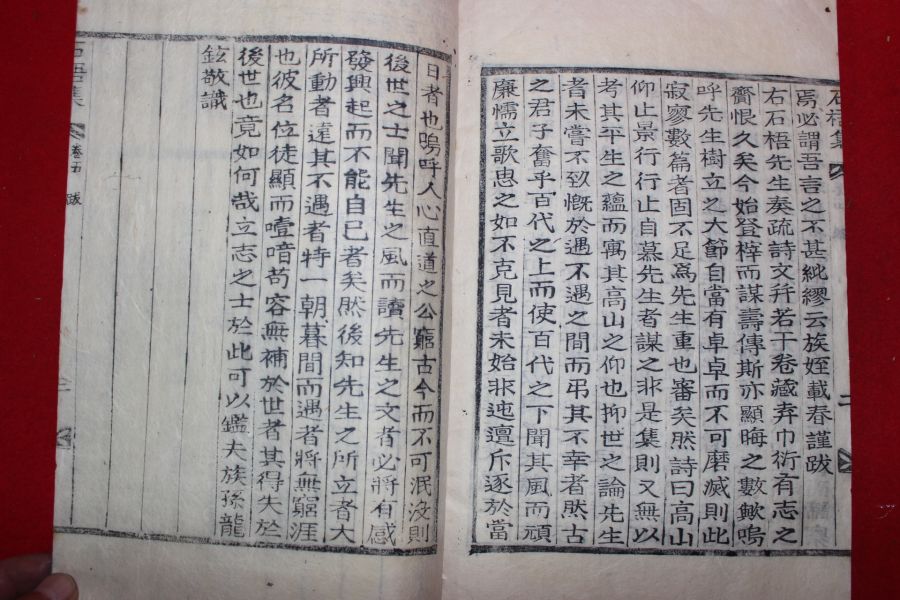 焉必謂吾言之不甚紕繆云族姪載春謹跋
右石梧先生奏疏詩文幷若干卷藏弆巾衍有志之
齎恨久矣今始登梓而謀壽傳斯亦顯晦之數歟嗚
呼先生樹立之大節自當有卓卓而不可磨滅則此
寂寥數篇者固不足爲先生重也審矣然詩曰高山
仰止景行行止自慕先生者謀之非是集則又無以
考其平生之蘊而寓其高山之仰也抑世之論先生
者未嘗不致慨於遇不遇之間而弔其不幸者然古
之君子奮乎百代之上而使百代之下聞其風而頑
廉懦立歌思之如不克見者未始非迍邅斥逐於當
日者也嗚呼人心直道之公窮古今而不可泯沒則
後世之士聞先生之風而讀先生之文者必將有感
發興起而不能自已者矣然後知先生之所立者大
所動者遠其不遇者特一朝暮間而遇者將無窮涯
也彼名位徒顯而噎喑苟容無補於世者其得失於
後世也竟如何哉立志之士於此可以鑑夫族孫龍
鉉敬識
石梧集
卷五 跋